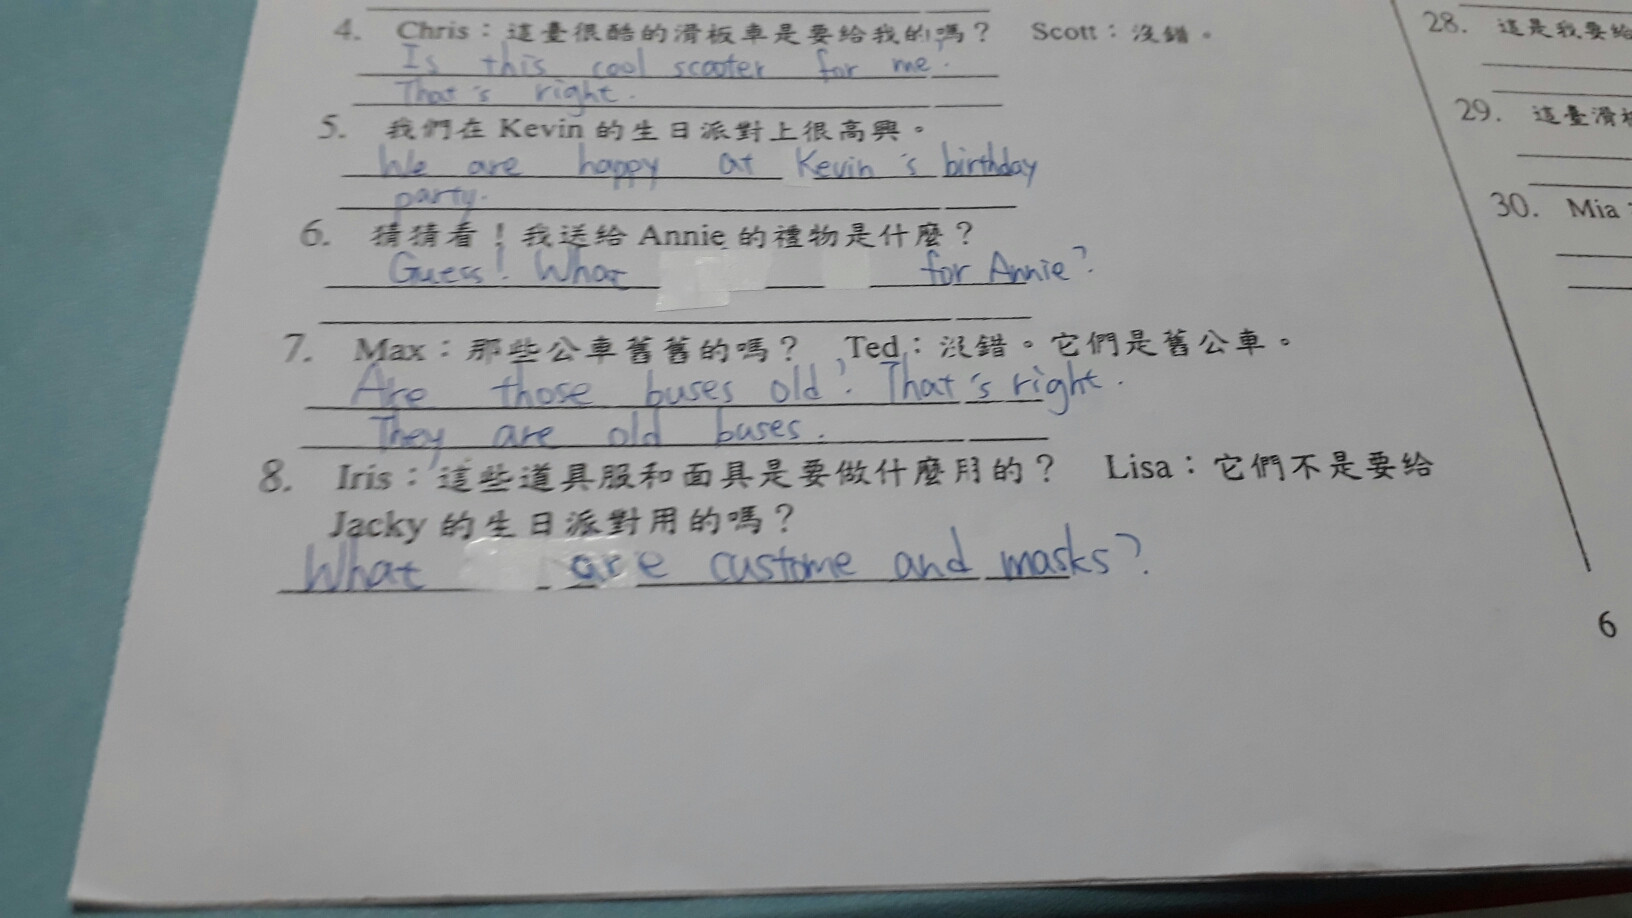 4. Chris：這臺很酷的滑板車是要給我的嗎？ Scott：沒錯。
Is this cool scooter for me?
That's right.
5. 我們在 Kevin 的生日派對上很高興。
We are happy at Kevin's birthday
party.
6. 猜猜看！我送給 Annie 的禮物是什麼？
Guess! What for Annie?
7. Max：那些公車舊舊的嗎？ Ted：沒錯。它們是舊公車。
Are those buses old? That's right.
They are old buses.
8. Iris：這些道具服和面具是要做什麼用的？ Lisa：它們不是要給
Jacky 的生日派對用的嗎？
What are custome and masks?
28. 這是我要給
29. 這臺滑板
30. Mia：
6